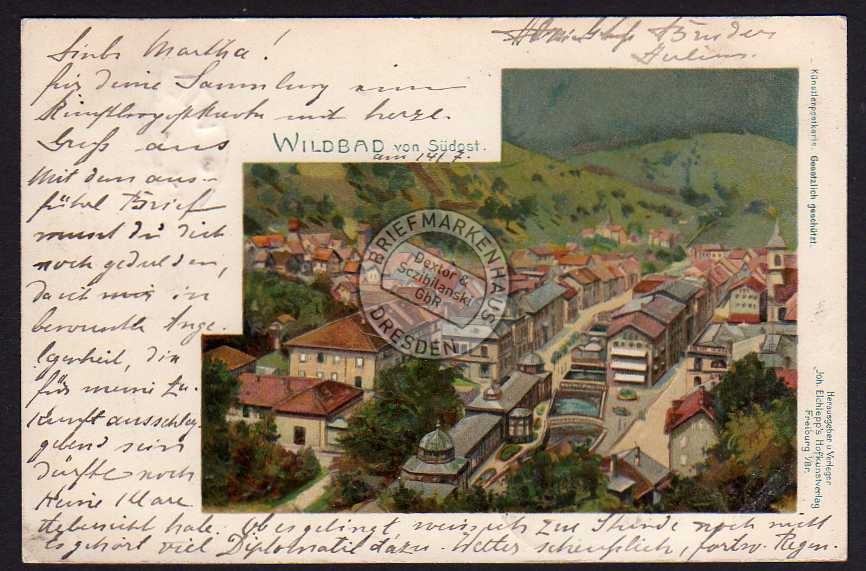 Liebe Martha!
für deine Sammlung eine
Künstlerpostkarte mit herzl.
Gruß aus
WILDBAD von Südost.
am 14/7.
Mit dem aus-
führl Brief
musst du dich
noch gedulden,
da ich mir in
bewusster Ange-
legenheit, die
für meine Zu-
kunft ausschlag-
gebend sein
dürfte noch
keine klare
Übersicht habe. Ob es gelingt, weiss ich zur Stunde noch nicht
es gehört viel Diplomatie dazu. Wetter scheusslich, fortw. Regen.
Bruder
Julius.
Künstlerpostkarte. Gesetzlich geschützt.
Herausgeber u. Verleger
Joh. Elchlepp's Hofkunstverlag
Freiburg i/Br.
BRIEFMARKENHAUS
Dextor &
Sczibilanski
GbR
DRESDEN